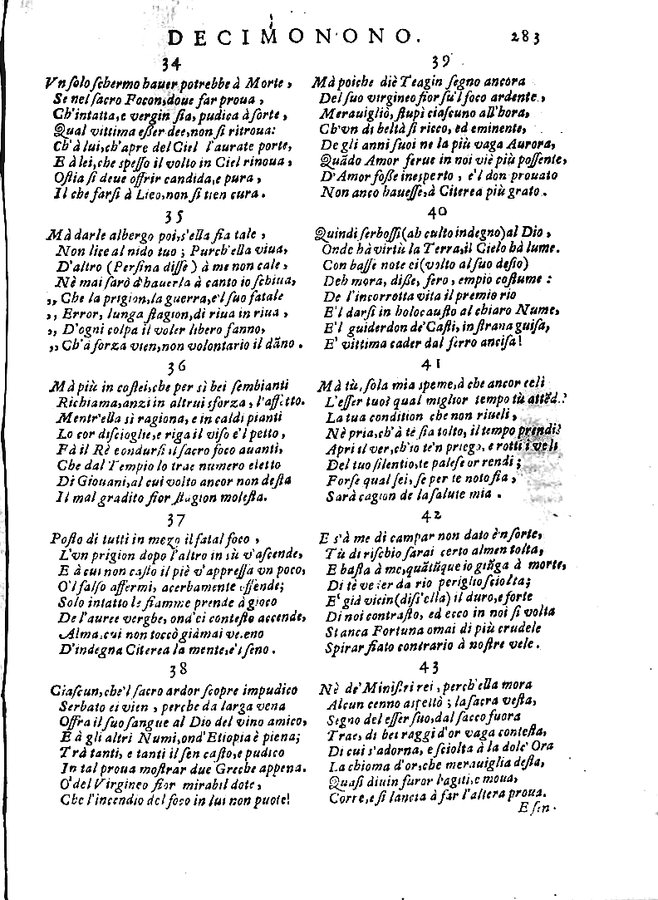 DECIMONONO. 283
34
Vn solo schermo hauer potrebbe à Morte,
Se nel sacro Focon, doue far proua,
Ch'intatta, e vergin sia, pudica à sorte,
Qual vittima esser dee, non si ritroua:
Ch'à lui, ch'apre del Ciel l'aurate porte,
E à lei, che spesso il volto in Ciel rinoua,
Ostia si deue offrir candida, e pura,
Il che farsi à Lieo, non si tien cura.
35
Mà darle albergo poi, s'ella sia tale,
Non lice al nido tuo; Purch'ella viua,
D'altro (Persina disse) à me non cale,
Nè mai sarò d'hauerla à canto io schiua,
,, Che la prigion, la guerra, e'l suo fatale
,, Error, lunga stagion, di riua in riua,
,, D'ogni colpa il voler libero fanno,
,, Ch'à forza vien, non volontario il dãno.
36
Mà più in costei, che per sì bei sembianti
Richiama, anzi in altrui sforza, l'affetto.
Mentr'ella si ragiona, e in caldi pianti
Lo cor discioglie, e riga il viso e'l petto,
Fà il Rè condursi il sacro foco auanti,
Che dal Tempio lo trae numero eletto
Di Giouani, al cui volto ancor non desta
Il mal gradito fior stagion molesta.
37
Posto di tutti in mezo il fatal foco,
L'vn prigion dopo l'altro in sù v'ascende,
E à cui non casto il piè v'appressa vn poco,
O'l falso affermi, acerbamente offende;
Solo intatto le fiamme prende à gioco
De l'auree verghe, ond'ei contesto accende,
Alma, cui non toccò giàmai veneno
D'indegna Citerea la mente, e'l seno.
38
Ciascun, che'l sacro ardor scopre impudico
Serbato ei vien, perche da larga vena
Offra il suo sangue al Dio del vino amico,
E à gli altri Numi, ond'Etiopia è piena;
Trà tanti, e tanti il sen casto, e pudico
In tal proua mostrar due Greche appena.
O' del Virgineo fior mirabil dote,
Che l'incendio del foco in lui non puote!
39
Mà poiche diè Teagin segno ancora
Del suo virgineo fior su'l foco ardente,
Merauigliò, stupì ciascuno all'hora,
Ch'vn di beltà sì ricco, ed eminente,
De gli anni suoi ne la più vaga Aurora,
Quãdo Amor ferue in noi viè più possente,
D'Amor fosse inesperto, e'l don prouato
Non anco hauesse, à Citerea più grato.
40
Quindi serbossi (ab culto indegno) al Dio,
Onde hà virtù la Terra, il Cielo hà lume.
Con basse note ei (volto al suo desio)
Deh mora, disse, fero, empio costume:
De l'incorrotta vita il premio rio
E'l darsi in holocausto al chiaro Nume,
E'l guiderdon de' Casti, in strana guisa,
E' vittima cader dal ferro ancisa!
41
Mà tù, sola mia speme, à che ancor celi
L'esser tuo? qual miglior tempo tù attẽd?
La tua condition che non riueli,
Nè pria, ch'à te sia tolto, il tempo prendi?
Apri il ver, ch'io te'n priego, e rotti i veli
Del tuo silentio, te palese or rendi;
Forse qual sei, se per te noto sia,
Sarà cagion de la salute mia.
42
E s'à me di campar non dato è'n sorte,
Tù di rischio sarai certo almen tolta,
E basta à me, quãtũque io giũga à morte,
Di te veder da rio periglio sciolta;
E' già vicin (diss'ella) il duro, e forte
Di noi contrasto, ed ecco in noi si volta
Stanca Fortuna omai di più crudele
Spirar fiato contrario à nostre vele.
43
Nè de' Ministri rei, perch'ella mora
Alcun cenno aspettò; la sacra vesta,
Segno del esser suo, dal sacco fuora
Trae, di bei raggi d'or vaga contesta,
Di cui s'adorna, e sciolta à la dolc' Ora
La chioma d'or, che merauiglia desta,
Quasi diuin furor l'agiti, e moua,
Corre, e si lancia à far l'altera proua.
E sen-